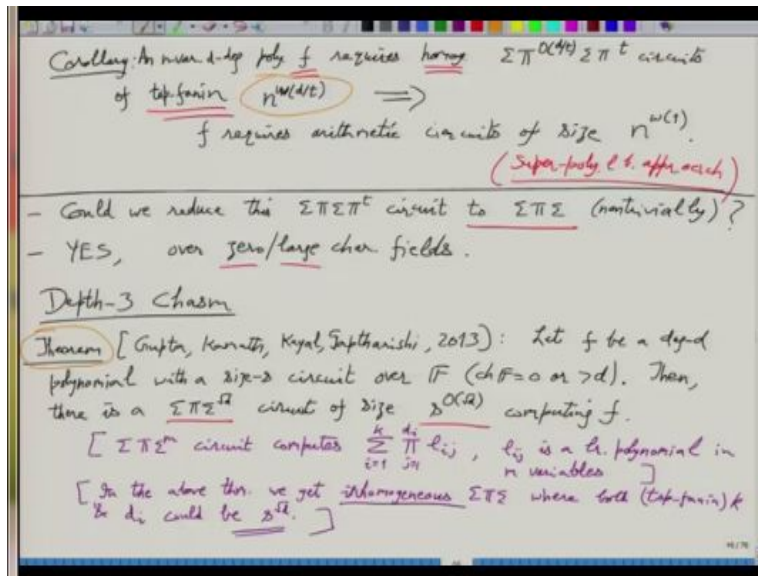 Corollary: An n-var. d-deg poly f requires homog. ΣΠ^{O(d/t)}ΣΠ^t circuits
of top-fanin n^{ω(d/t)} ⟹
f requires arithmetic circuits of size n^{ω(1)}.
(Super-poly l.b. approach)
- Could we reduce this ΣΠΣΠ^t circuit to ΣΠΣ (nontrivially)?
- YES, over zero/large char. fields.
Depth-3 Chasm
Theorem [Gupta, Kamath, Kayal, Saptharishi, 2013]: Let f be a deg-d
polynomial with a size-s circuit over F (ch F=0 or >d). Then,
there is a ΣΠΣ^{√d} circuit of size s^{O(√d)} computing f.
[ ΣΠΣ^m circuit computes Σ_{i=1}^{k} Π_{j=1}^{d_i} l_{ij}, l_{ij} is a lr. polynomial in
m variables ]
[ In the above thm. we get inhomogeneous ΣΠΣ where both (top-fanin) k
& d_i could be s^{√d}. ]